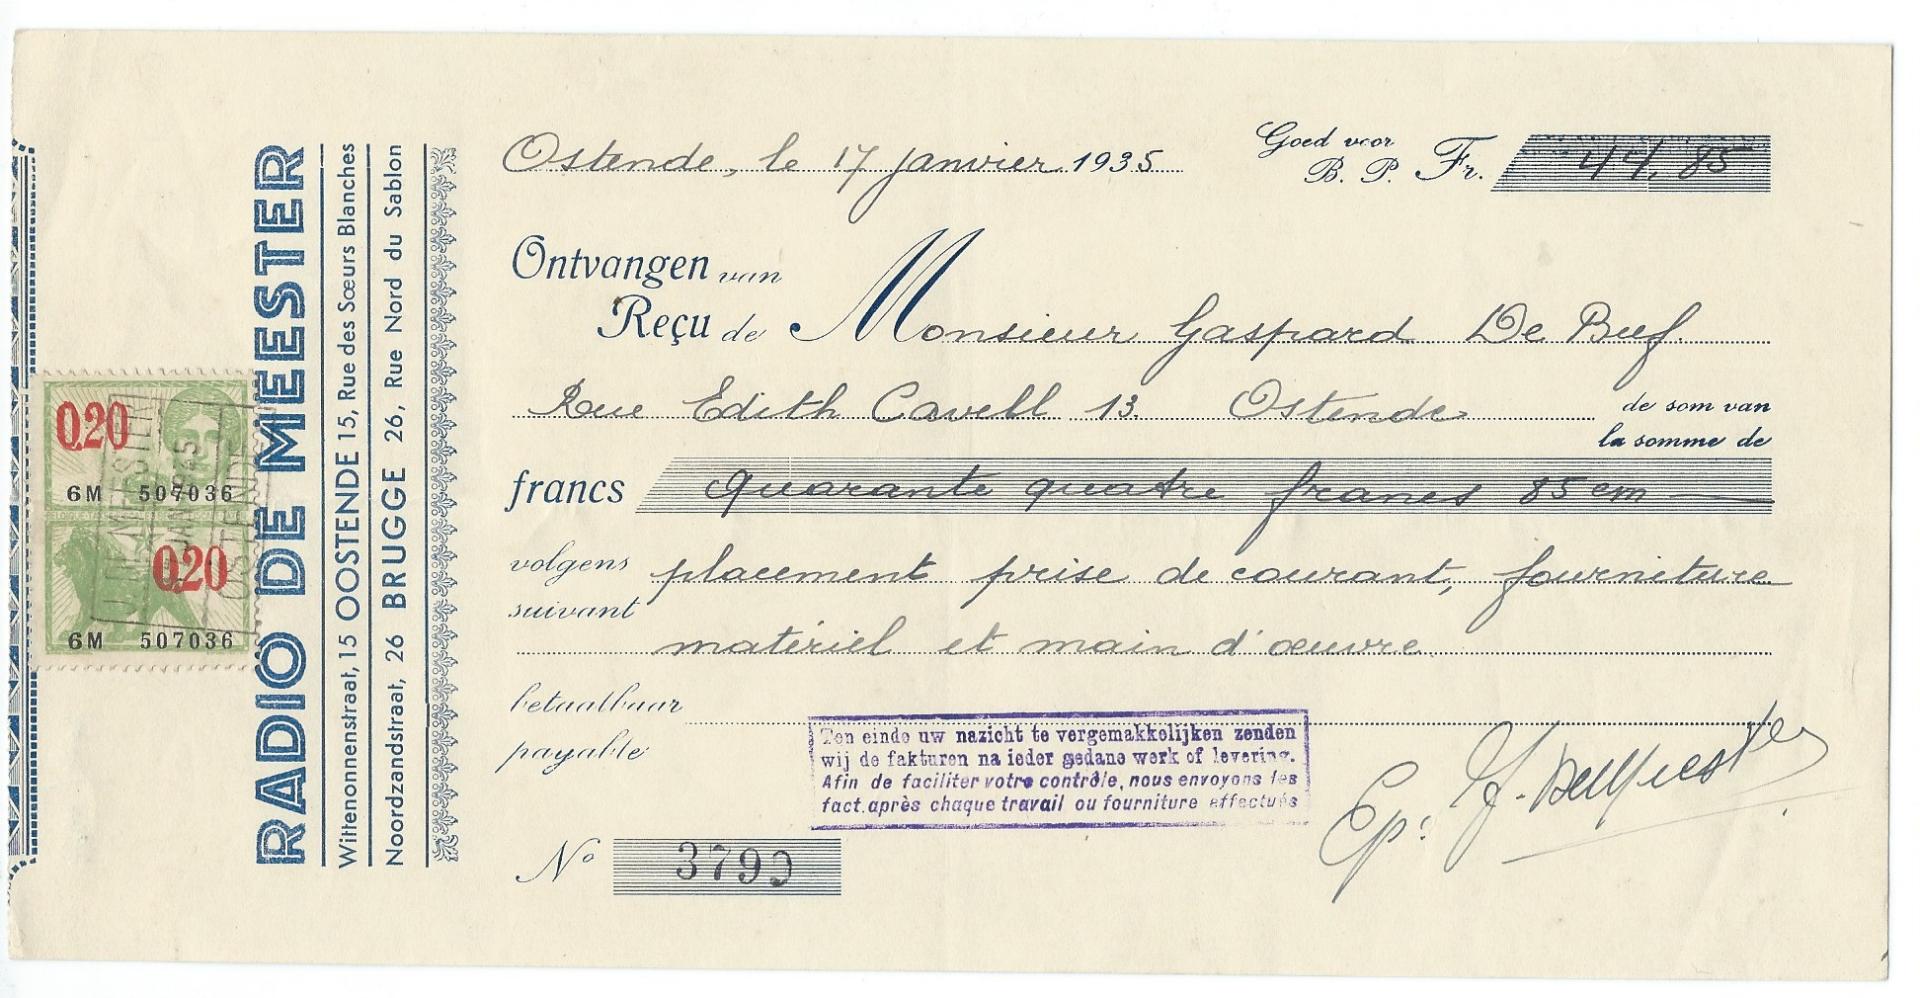 RADIO DE MEESTER
Wittenonnenstraat, 15 OOSTENDE 15, Rue des Sœurs Blanches
Noordzandstraat, 26 BRUGGE 26, Rue Nord du Sablon
0.20
6M 507036
0.20
6M 507036
OSTENDE
Ostende, le 17 janvier 1935
Goed voor
B. P. Fr. 44,85
Ontvangen van
Reçu de Monsieur Gaspard De Buf.
Rue Edith Cavell 13. Ostende
de som van
la somme de
francs quarante quatre francs 85 cm
volgens
suivant
placement prise de courant, fourniture
matériel et main d'œuvre.
betaalbaar
payable
Ten einde uw nazicht te vergemakkelijken zenden
wij de fakturen na ieder gedane werk of levering.
Afin de faciliter votre contrôle, nous envoyons les
fact. après chaque travail ou fourniture effectués
No 3790